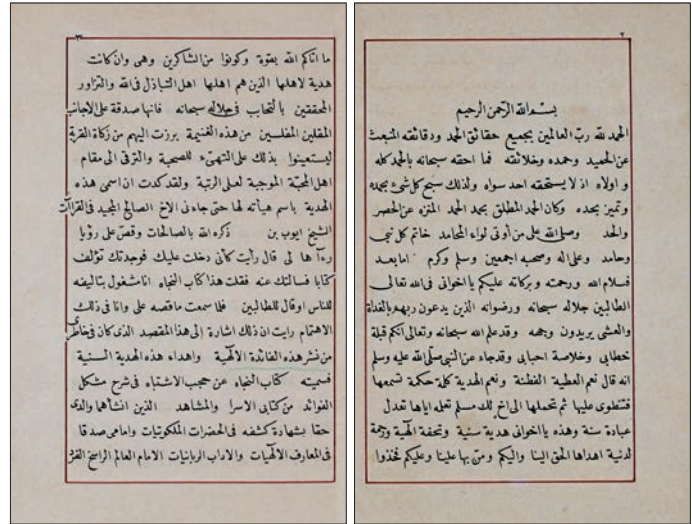 ٢
بسم الله الرحمن الرحيم
الحمد لله رب العالمين بجميع حقائق الحمد ودقائقه المنبعث
عن الحميد وحمده وخلائقه فما احقه سبحانه بالحمد كله
و اولاه اذ لا يستحقه احد سواه ولذلك سبح كل شئ بحمده
وتميز بحده وكان الحمد المطلق بحمد الحمد المنزه عن الحصر
والحد وصلى الله على من أوتى لواء المحامد خاتم كل نبى
وحامد وعلى اله وصحبه اجمعين وسلم وكرم امابعد
فسلام الله ورحمته وبركاته عليكم يااخوانى فى الله تعالى
الطالبين جلاله سبحانه ورضوانه الذين يدعون ربهم بالغداة
والعشى يريدون وجهه وقد علم الله سبحانه وتعالى انكم قبلة
خطابى وخلاصة احبابى وقد جاء عن النبى صلى الله عليه وسلم
انه قال نعم العطية الفطنة ونعم الهدية كلة حكمة تسمعها
فتنطوى عليها ثم تحملها الى اخ لك مسلم تعلمه اياها تعدل
عبادة سنة وهذه يااخوانى هدية سنية وتحفة الهية ورحمة
لدنية اهداها الحق الينا واليكم ومن بها علينا وعليكم فخذوا
٣
ما اتاكم الله بقوة وكونوا من الشاكرين وهى وان كانت
هدية لاهلها الذين هم اهلها اهل التباذل فى الله والتزاور
المحققين بالتحاب فى جلاله سبحانه فانها صدقة على الاجانب
المقلين المفلسين من هذه الغنيمة برزت اليهم من زكاة القربة
ليستعينوا بذلك على التهىء للصحبة والترقى الى مقام
اهل المحبة الموجبة لعلى الرتبة ولقد كدت ان اسمى هذه
الهدية باسم هيأته لها حتى جاءنى الاخ الصالح المجيد فى القراآت
الشيخ ايوب بن ذكره الله بالصالحات وقص على رؤيا
رءآها لى قال رأيت كأنى دخلت عليك فوجدتك تؤلف
كتابا فسالتك عنه فقلت هذا كتاب النجاه انا مشغول بتاليفه
للناس اوقال للطالبين فلا سمعت ما قصه على وانا فى ذلك
الاهتمام رايت ان ذلك اشارة الى هذا المقصد الذى كان فى خاطرى
من نشر هذه الفائدة الالهية واهداء هذه الهدية السنية
فسميته كتاب النجاه عن حجب الاشتباه فى شرح مشكل
الفوائد من كتابى الاسرا والمشاهد الذين انشأهما والدى
حقا بشهادة كشفه فى الحضرات الملكوتيات وامامى صدقا
فى المعارف الالهيات والاداب الربانيات الامام العالم الراسخ